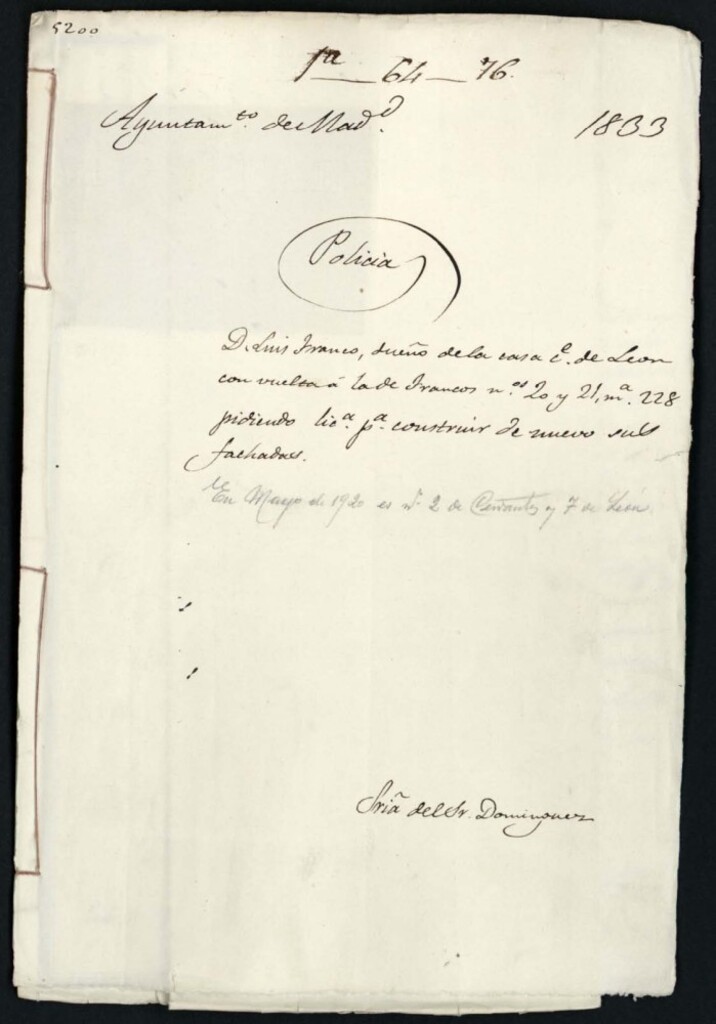 5200
1ª 64 76.
Ayuntamto. de Madd. 1833
Policia
D. Luis Franco, dueño de la casa ce. de Leon
con vuelta á la de Francos nos. 20 y 21, ma. 228
pidiendo lica. pa. construir de nuevo sus
fachadas.
En Mayo de 1920 es nº 2 de Cervantes y 7 de León.
Sria del Sr. Dominguez